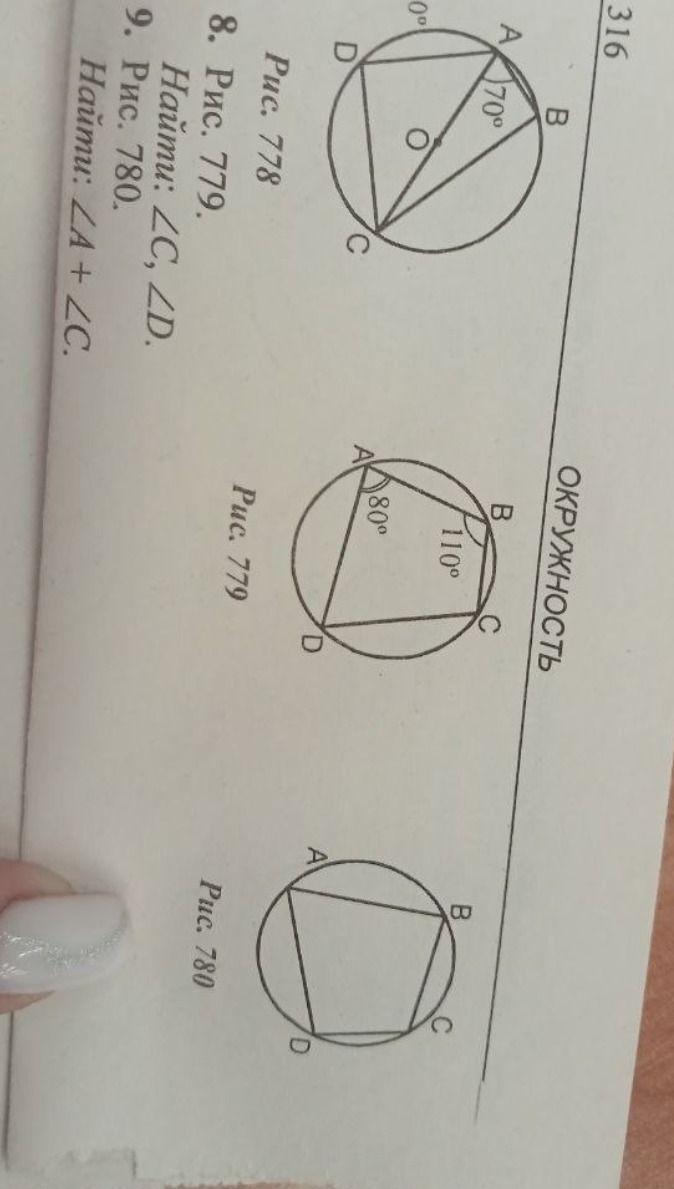 316
ОКРУЖНОСТЬ
A
B
70°
O
D
C
0°
Рис. 778
B
110°
C
A
80°
D
Рис. 779
B
C
A
D
Рис. 780
8. Рис. 779.
Найти: ∠C, ∠D.
9. Рис. 780.
Найти: ∠A + ∠C.